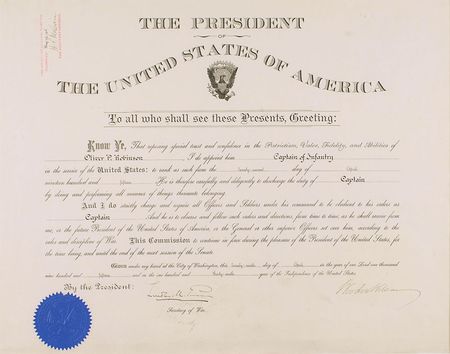 THE PRESIDENT
OF
THE UNITED STATES OF AMERICA
To all who shall see these Presents, Greeting:
Know Ye, That reposing special trust and confidence in the Patriotism, Valor, Fidelity, and Abilities of
Oliver P. Robinson I do appoint him Captain of Infantry
in the service of the United States: to rank as such from the day of
nineteen hundred and He is therefore carefully and diligently to discharge the duty of Captain
by doing and performing all manner of things thereunto belonging.
And I do strictly charge and require all Officers and Soldiers under his command to be obedient to his orders as
Captain And he is to observe and follow such orders and directions, from time to time, as he shall receive from
me, or the future President of the United States of America, or the General or other superior Officers set over him, according to the
rules and discipline of War. This Commission to continue in force during the pleasure of the President of the United States, for
the time being, and until the end of the next session of the Senate.
Given under my hand at the City of Washington, this day of in the year of our Lord one thousand
nine hundred and and in the one hundred and year of the Independence of the United States.
By the President:
Secretary of War.